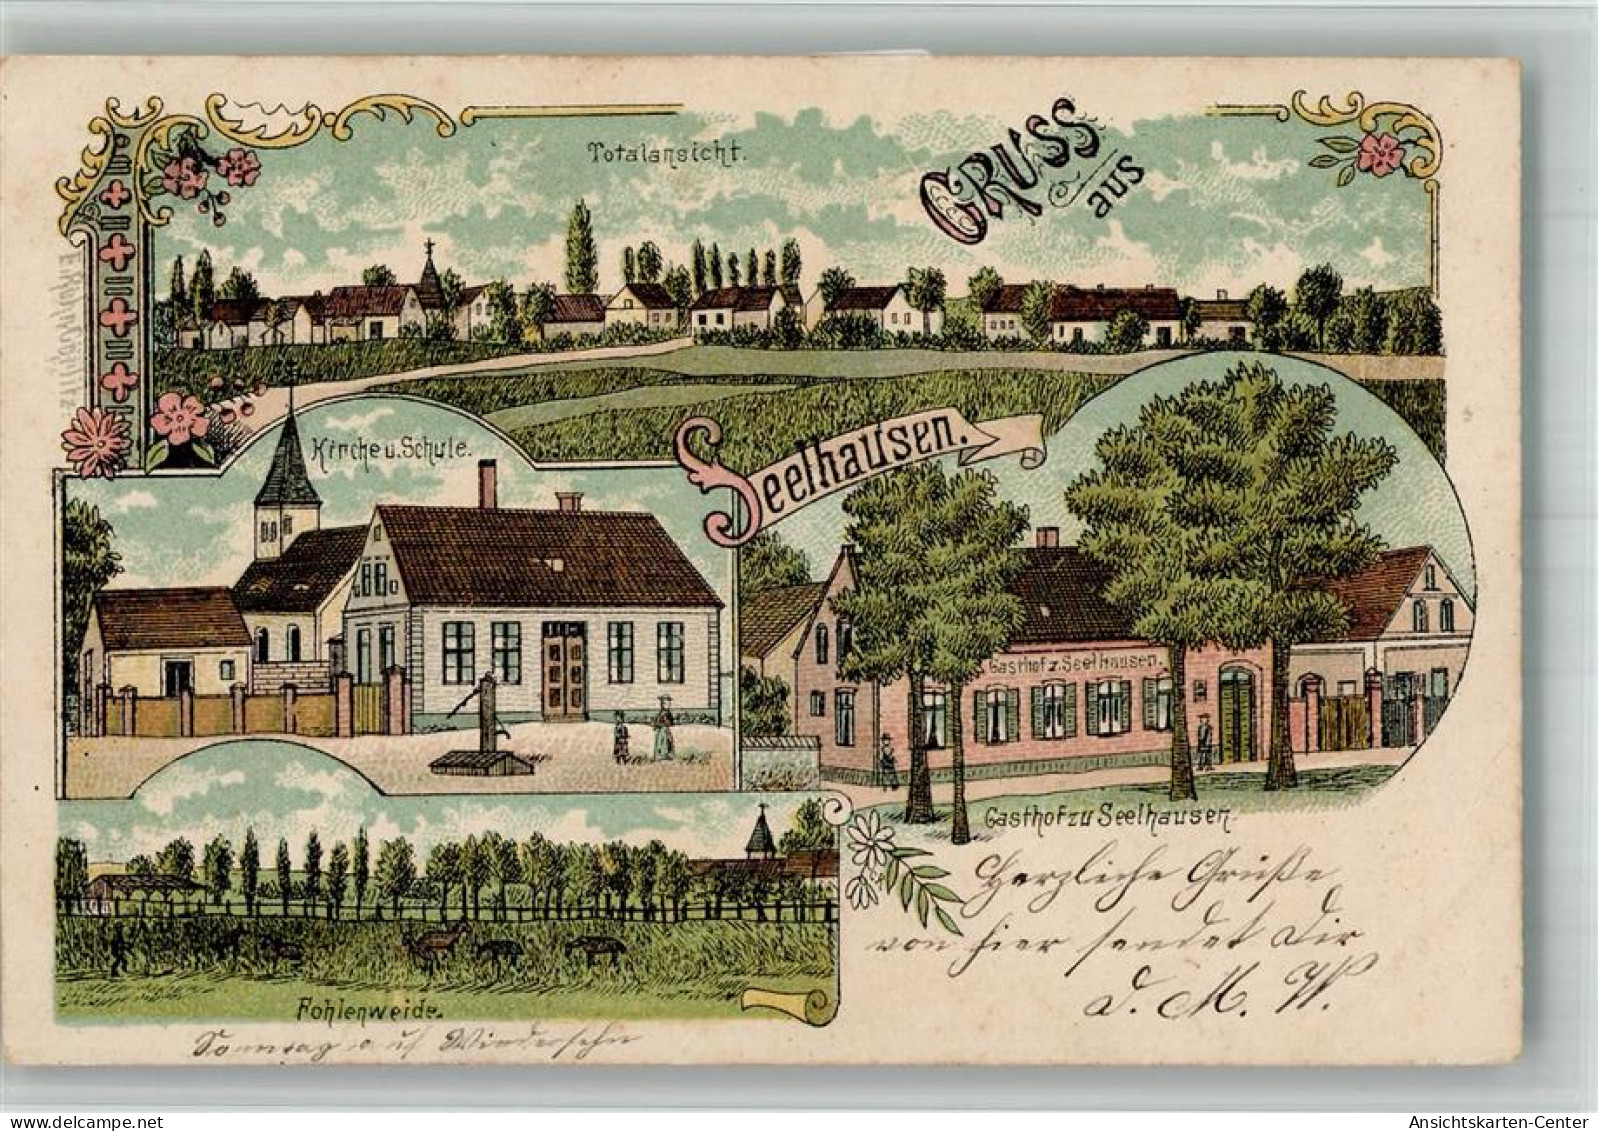 Totalansicht.
GRUSS
aus
Seelhausen.
Kirche u. Schule.
Gasthof z. Seelhausen.
Gasthof zu Seelhausen.
Fohlenweide.
Herzliche Grüße
von hier sendet Dir
D. M. W.
Sonntag auf Wiedersehn
Ansichtskarten-Center